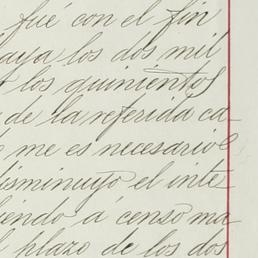 fué con el fin
aya los dos mil
los quinientos
de la referida ca-
me es necesario
disminuyo el inte-
iendo á censo ma-
l plazo de los dos